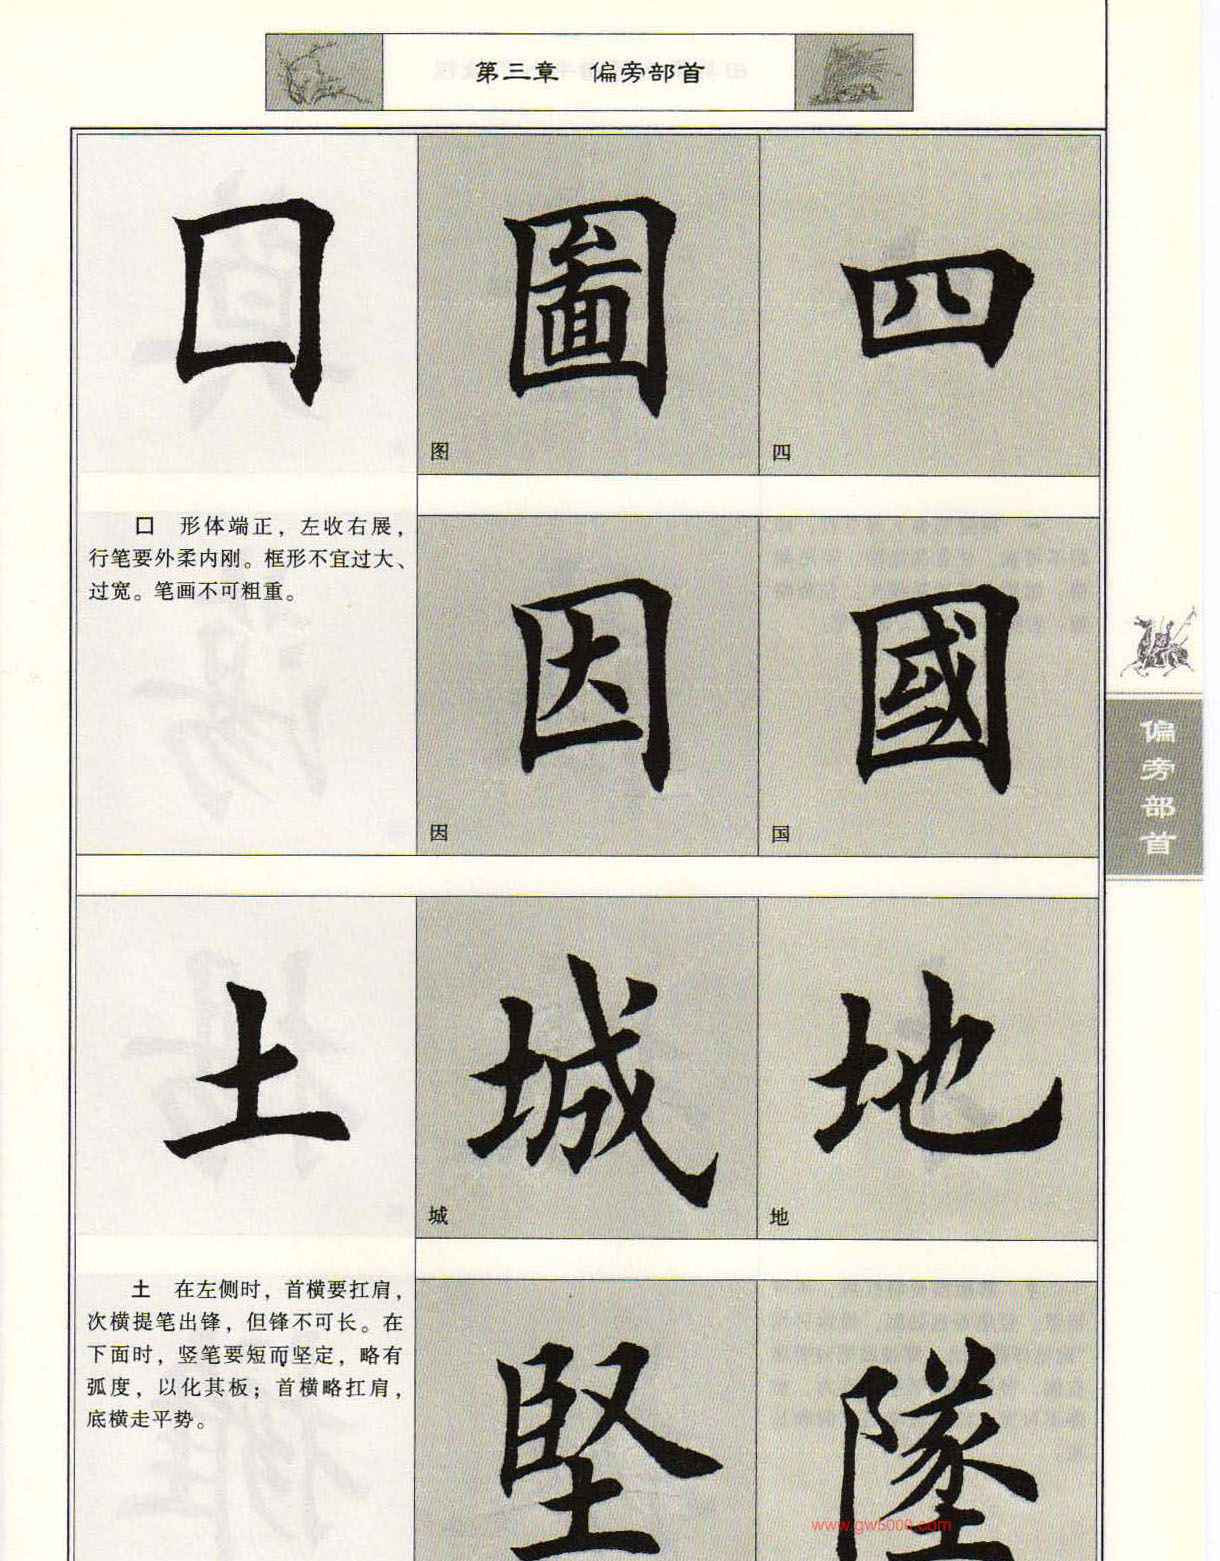 第三章 偏旁部首
囗
圖
四
图
四
囗 形体端正，左收右展，
行笔要外柔内刚。框形不宜过大、
过宽。笔画不可粗重。
因
國
因
国
偏旁部首
土
城
地
城
地
土 在左侧时，首横要扛肩，
次横提笔出锋，但锋不可长。在
下面时，竖笔要短而坚定，略有
弧度，以化其板；首横略扛肩，
底横走平势。
堅
墜
www.gw5000.com